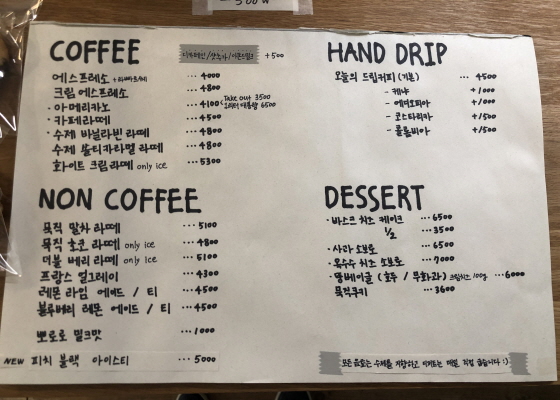 COFFEE
+500
에스프레소 ... 4000
크림 에스프레소 ... 4800
· 아메리카노 ... 4100 < Take out 3500
6500
· 카페라떼 ... 4500
· 수제 바닐라빈 라떼 ... 4800
수제 솔티카라멜 라떼 ... 4800
화이트 크림라떼 only ice ... 5300
NON COFFEE
묵직 말차 라떼 ... 5100
묵직 초코 라떼 only ice ... 4800
더블 베리 라떼 only ice ... 5100
프랑스 얼그레이 ... 4300
레몬 라임 에이드 / 티 ... 4500
블루베리 레몬 에이드 / 티 ... 4500
뽀로로 밀크맛 ... 1000
NEW 피치 블랙 아이스티 ... 5000
HAND DRIP
오늘의 드립커피 (기본) ... 4500
- 케냐 +1000
- 에티오피아 +1000
- 코스타리카 +1500
- 콜롬비아 +1500
DESSERT
· 바스크 치즈 케이크 ... 6500
1/2 ... 3500
· 사과 소보로 ... 6500
· 옥수수 치즈 소보로 ... 7000
· 뜰베이글 (호두 / 무화과) 크림치즈 100g ... 6000
묵직쿠키 ... 3600
모든 음료는 수제를 지향하고 디저트는 매일 직접 굽습니다 :)